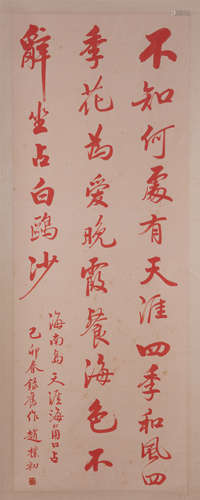 不知何處有天涯四季和風四
季花为愛晚霞餐海色不
辭坐占白鷗沙
海南岛天涯海角口占
己卯春錄舊作趙樸初